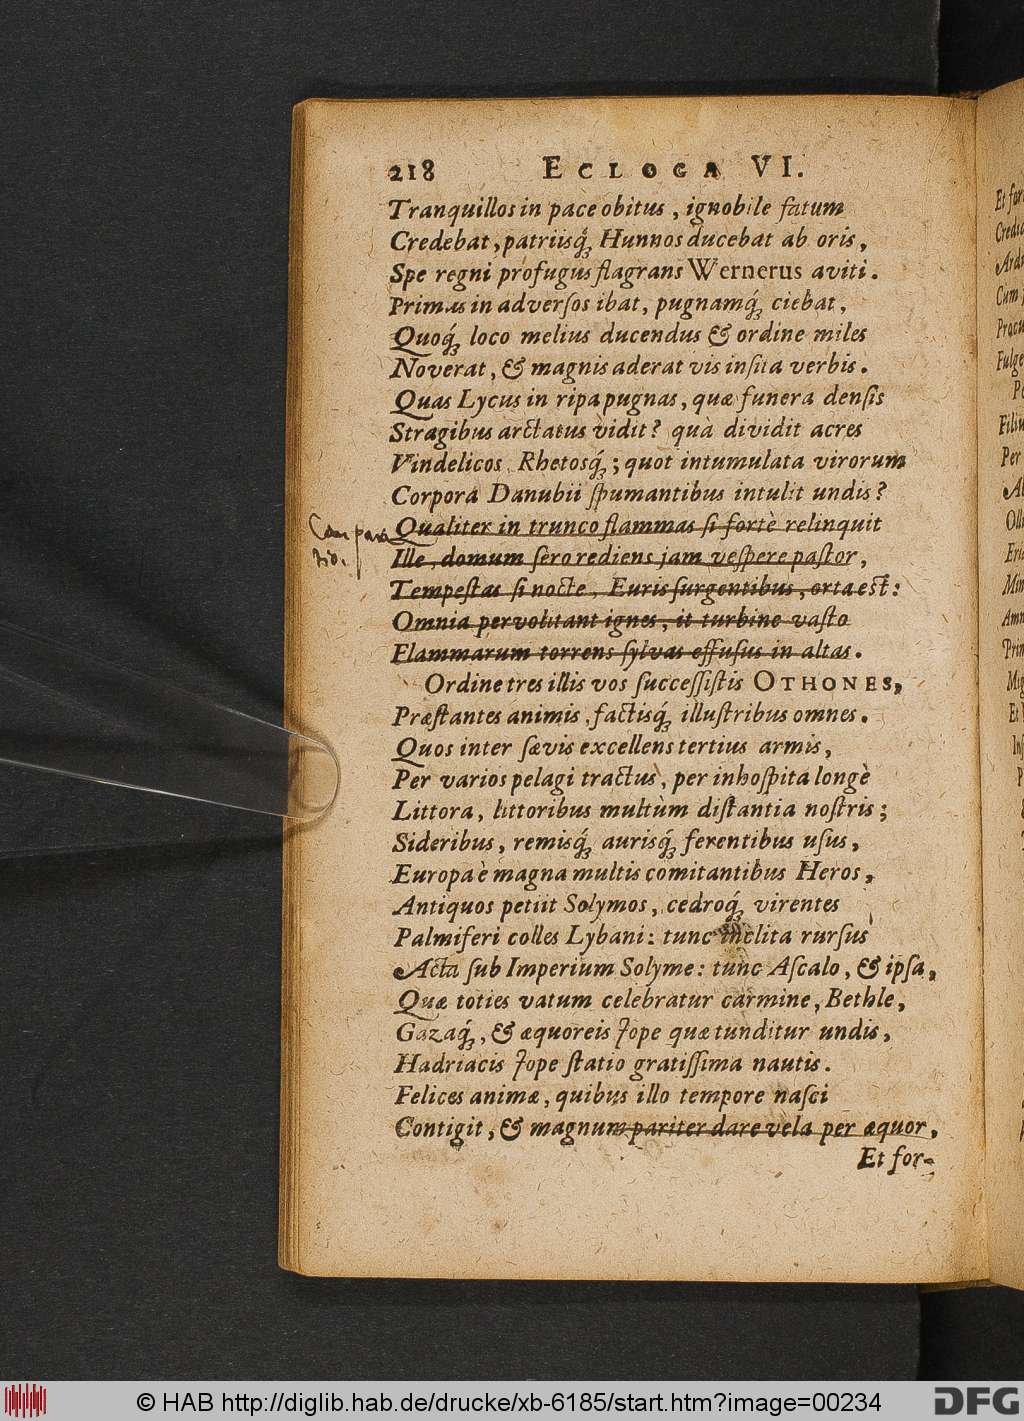 218 ECLOGA VI.
Tranquillos in pace obitus, ignobile fatum
Credebat, patriisq́; Hunnos ducebat ab oris,
Spe regni profugus flagrans Wernerus aviti.
Primus in adversos ibat, pugnamq́; ciebat,
Quoq́; loco melius ducendus & ordine miles
Noverat, & magnis aderat vis insita verbis.
Quas Lycus in ripa pugnas, quæ funera densis
Stragibus arctatus vidit? quà dividit acres
Vindelicos Rhetosq́; ; quot intumulata virorum
Corpora Danubii spumantibus intulit undis?
Qualiter in trunco flammas si fortè relinquit
Ille, domum sero rediens jam vespere pastor,
Tempestas si nocte, Euris surgentibus, orta est:
Omnia pervolitant ignes, it turbine vasto
Flammarum torrens sylvas effusus in altas.
Compara
tio.
Ordine tres illis vos successistis OTHONES,
Præstantes animis, factisq́; illustribus omnes.
Quos inter sævis excellens tertius armis,
Per varios pelagi tractus, per inhospita longè
Littora, littoribus multùm distantia nostris;
Sideribus, remisq́; aurisq́; ferentibus usus,
Europa è magna multis comitantibus Heros,
Antiquos petiit Solymos, cedroq́; virentes
Palmiferi colles Lybani: tunc inclita rursus
Acta sub Imperium Solyme: tunc Ascalo, & ipsa,
Quæ toties vatum celebratur carmine, Bethle,
Gazaq́;, & æquoreis Jope quæ tunditur undis,
Hadriacis Jope statio gratissima nautis.
Felices animæ, quibus illo tempore nasci
Contigit, & magnum pariter dare vela per æquor,
Et for-
© HAB http://diglib.hab.de/drucke/xb-6185/start.htm?image=00234
DFG